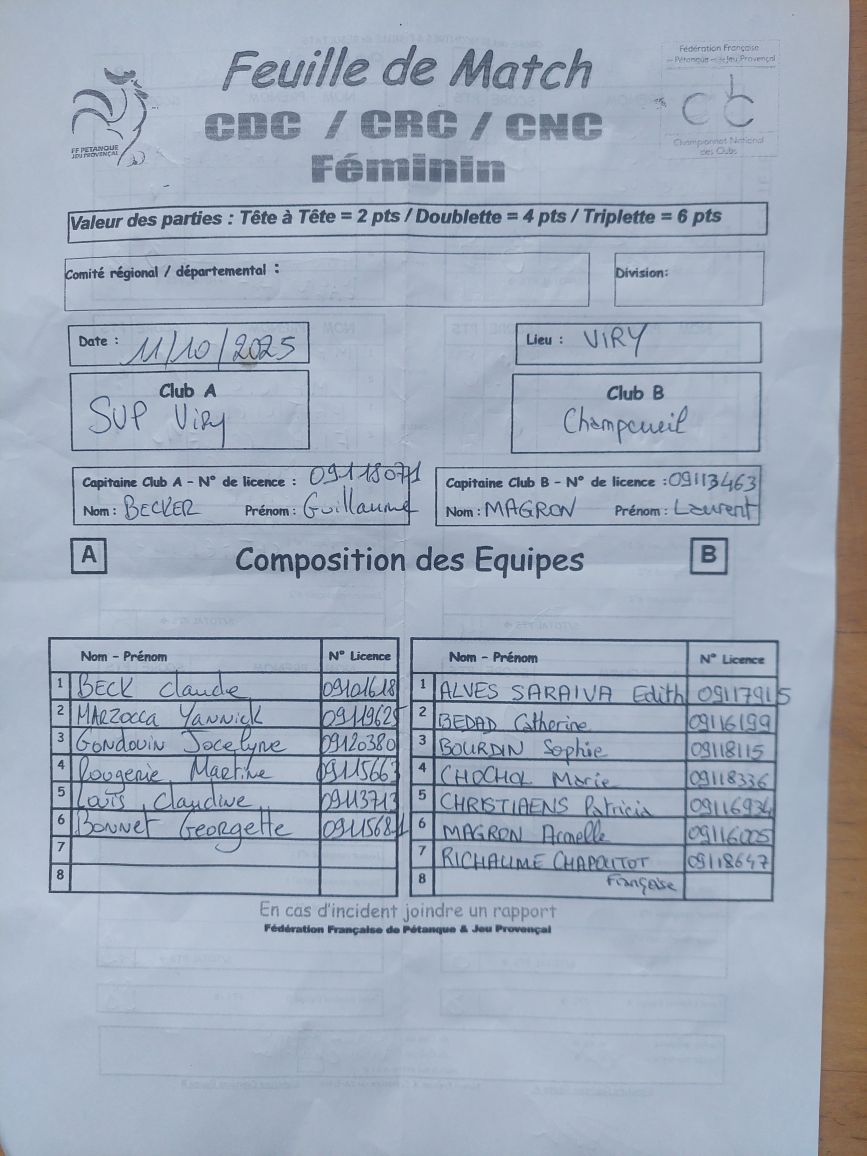 Feuille de Match
CDC / CRC / CNC
Féminin
FF PETANQUE
JEU PROVENÇAL
Fédération Française
Pétanque Jeu Provençal
Championnat National
des Clubs
Valeur des parties : Tête à Tête = 2 pts / Doublette = 4 pts / Triplette = 6 pts
Comité régional / départemental :
Division:
Date : 11/10/2025
Lieu : VIRY
Club A
SUP Viry
Club B
Champcueil
Capitaine Club A - N° de licence : 09118071
Nom : BECKER Prénom : Guillaume
Capitaine Club B - N° de licence : 09113463
Nom : MAGRON Prénom : Laurent
A Composition des Equipes B
Nom - Prénom N° Licence
1 BECK Claude 09101618
2 MARZOCCA Yannick 09119625
3 Gondouin Jocelyne 09120380
4 Rougerie Martine 09115663
5 Laïs Claudine 09113713
6 Bonnet Georgette 09115681
7
8
Nom - Prénom N° Licence
1 ALVES SARAIVA Edith 09117915
2 BEDAD Catherine 09116199
3 BOURDIN Sophie 09118115
4 CHOCHOL Marie 09118336
5 CHRISTIAENS Patricia 09116934
6 MAGRON Armelle 09116005
7 RICHAUME CHAPOUTOT 09118647
8 Françoise
En cas d'incident joindre un rapport
Fédération Française de Pétanque & Jeu Provençal